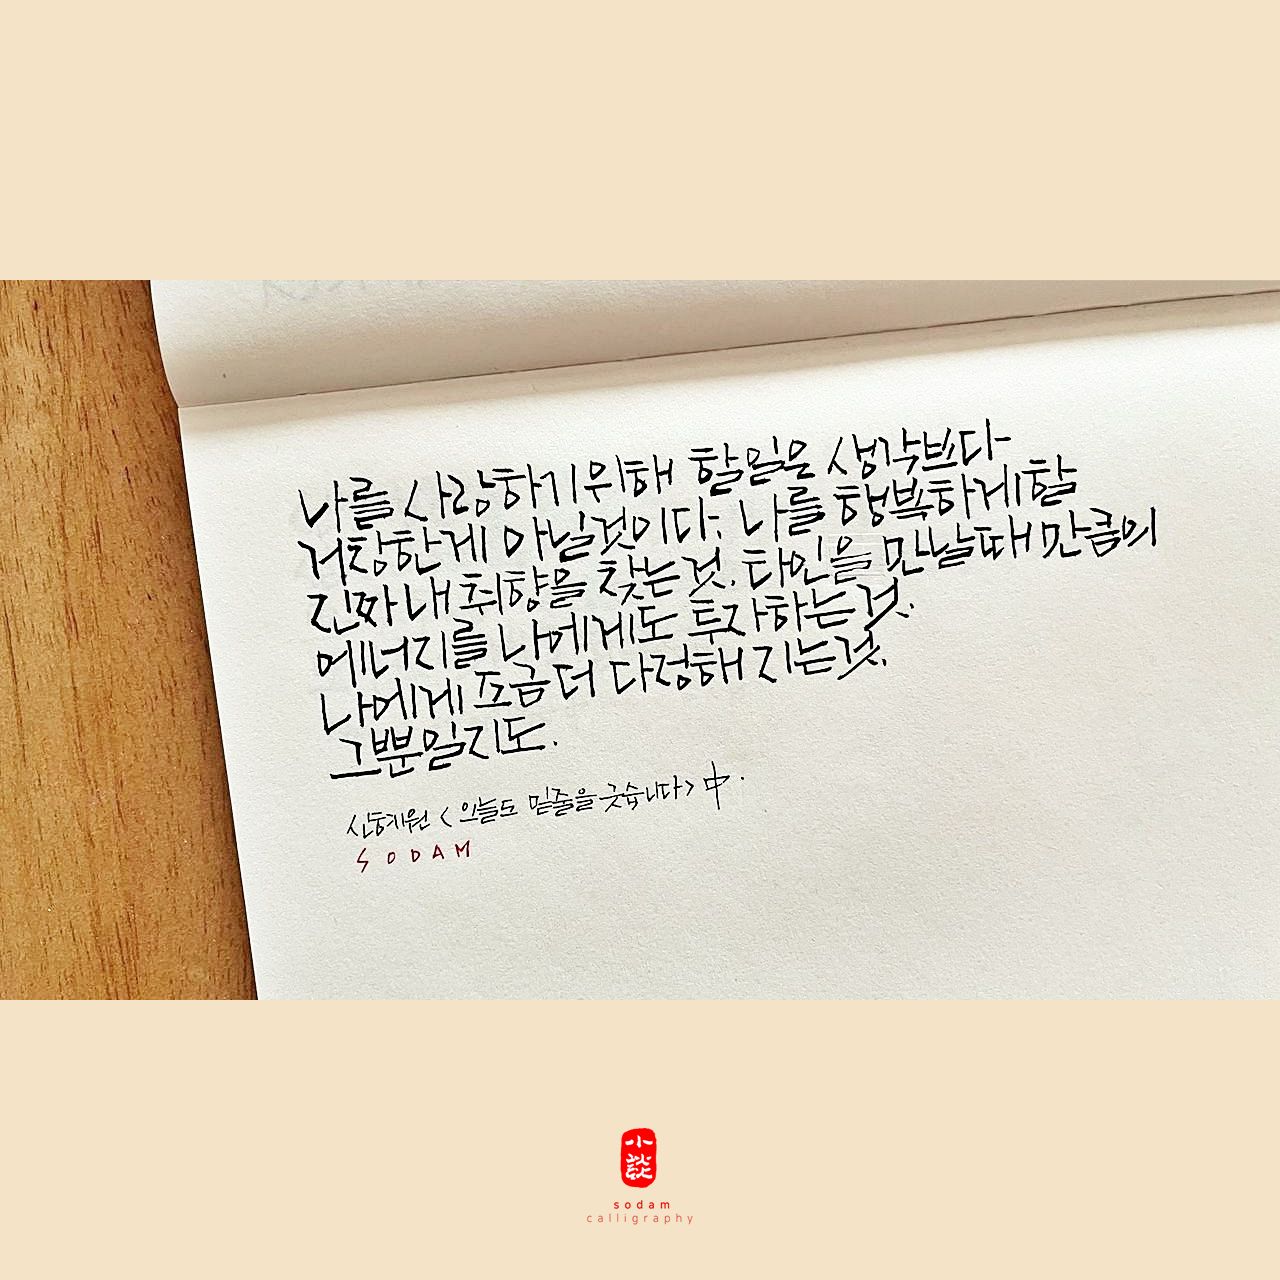 나를 사랑하기 위해 할 일은 생각보다
거창한게 아닐것이다. 나를 행복하게 할
진짜 내 취향을 찾는것. 타인을 만날때 만큼의
에너지를 나에게도 투자하는것.
나에게 조금 더 다정해 지는것.
그뿐일지도.
신효원 <오늘도 밑줄을 긋습니다> 中.
SODAM
小談
sodam
calligraphy